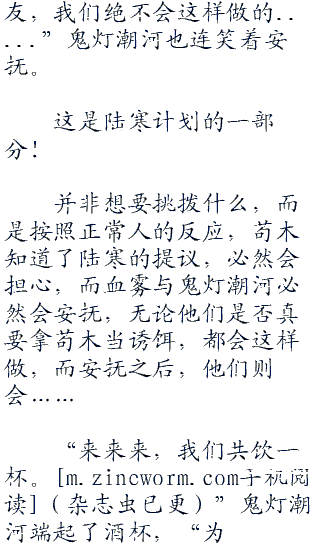 友，我们绝不会这样做的..
...”鬼灯潮河也连笑着安
抚。
这是陆寒计划的一部
分！
并非想要挑拨什么，而
是按照正常人的反应，苟木
知道了陆寒的提议，必然会
担心，而血雾与鬼灯潮河必
然会安抚，无论他们是否真
要拿苟木当诱饵，都会这样
做，而安抚之后，他们则
会……
“来来来，我们共饮一
杯。[m.zincworm.com手机阅
读]（杂志虫已更）”鬼灯潮
河端起了酒杯，“为